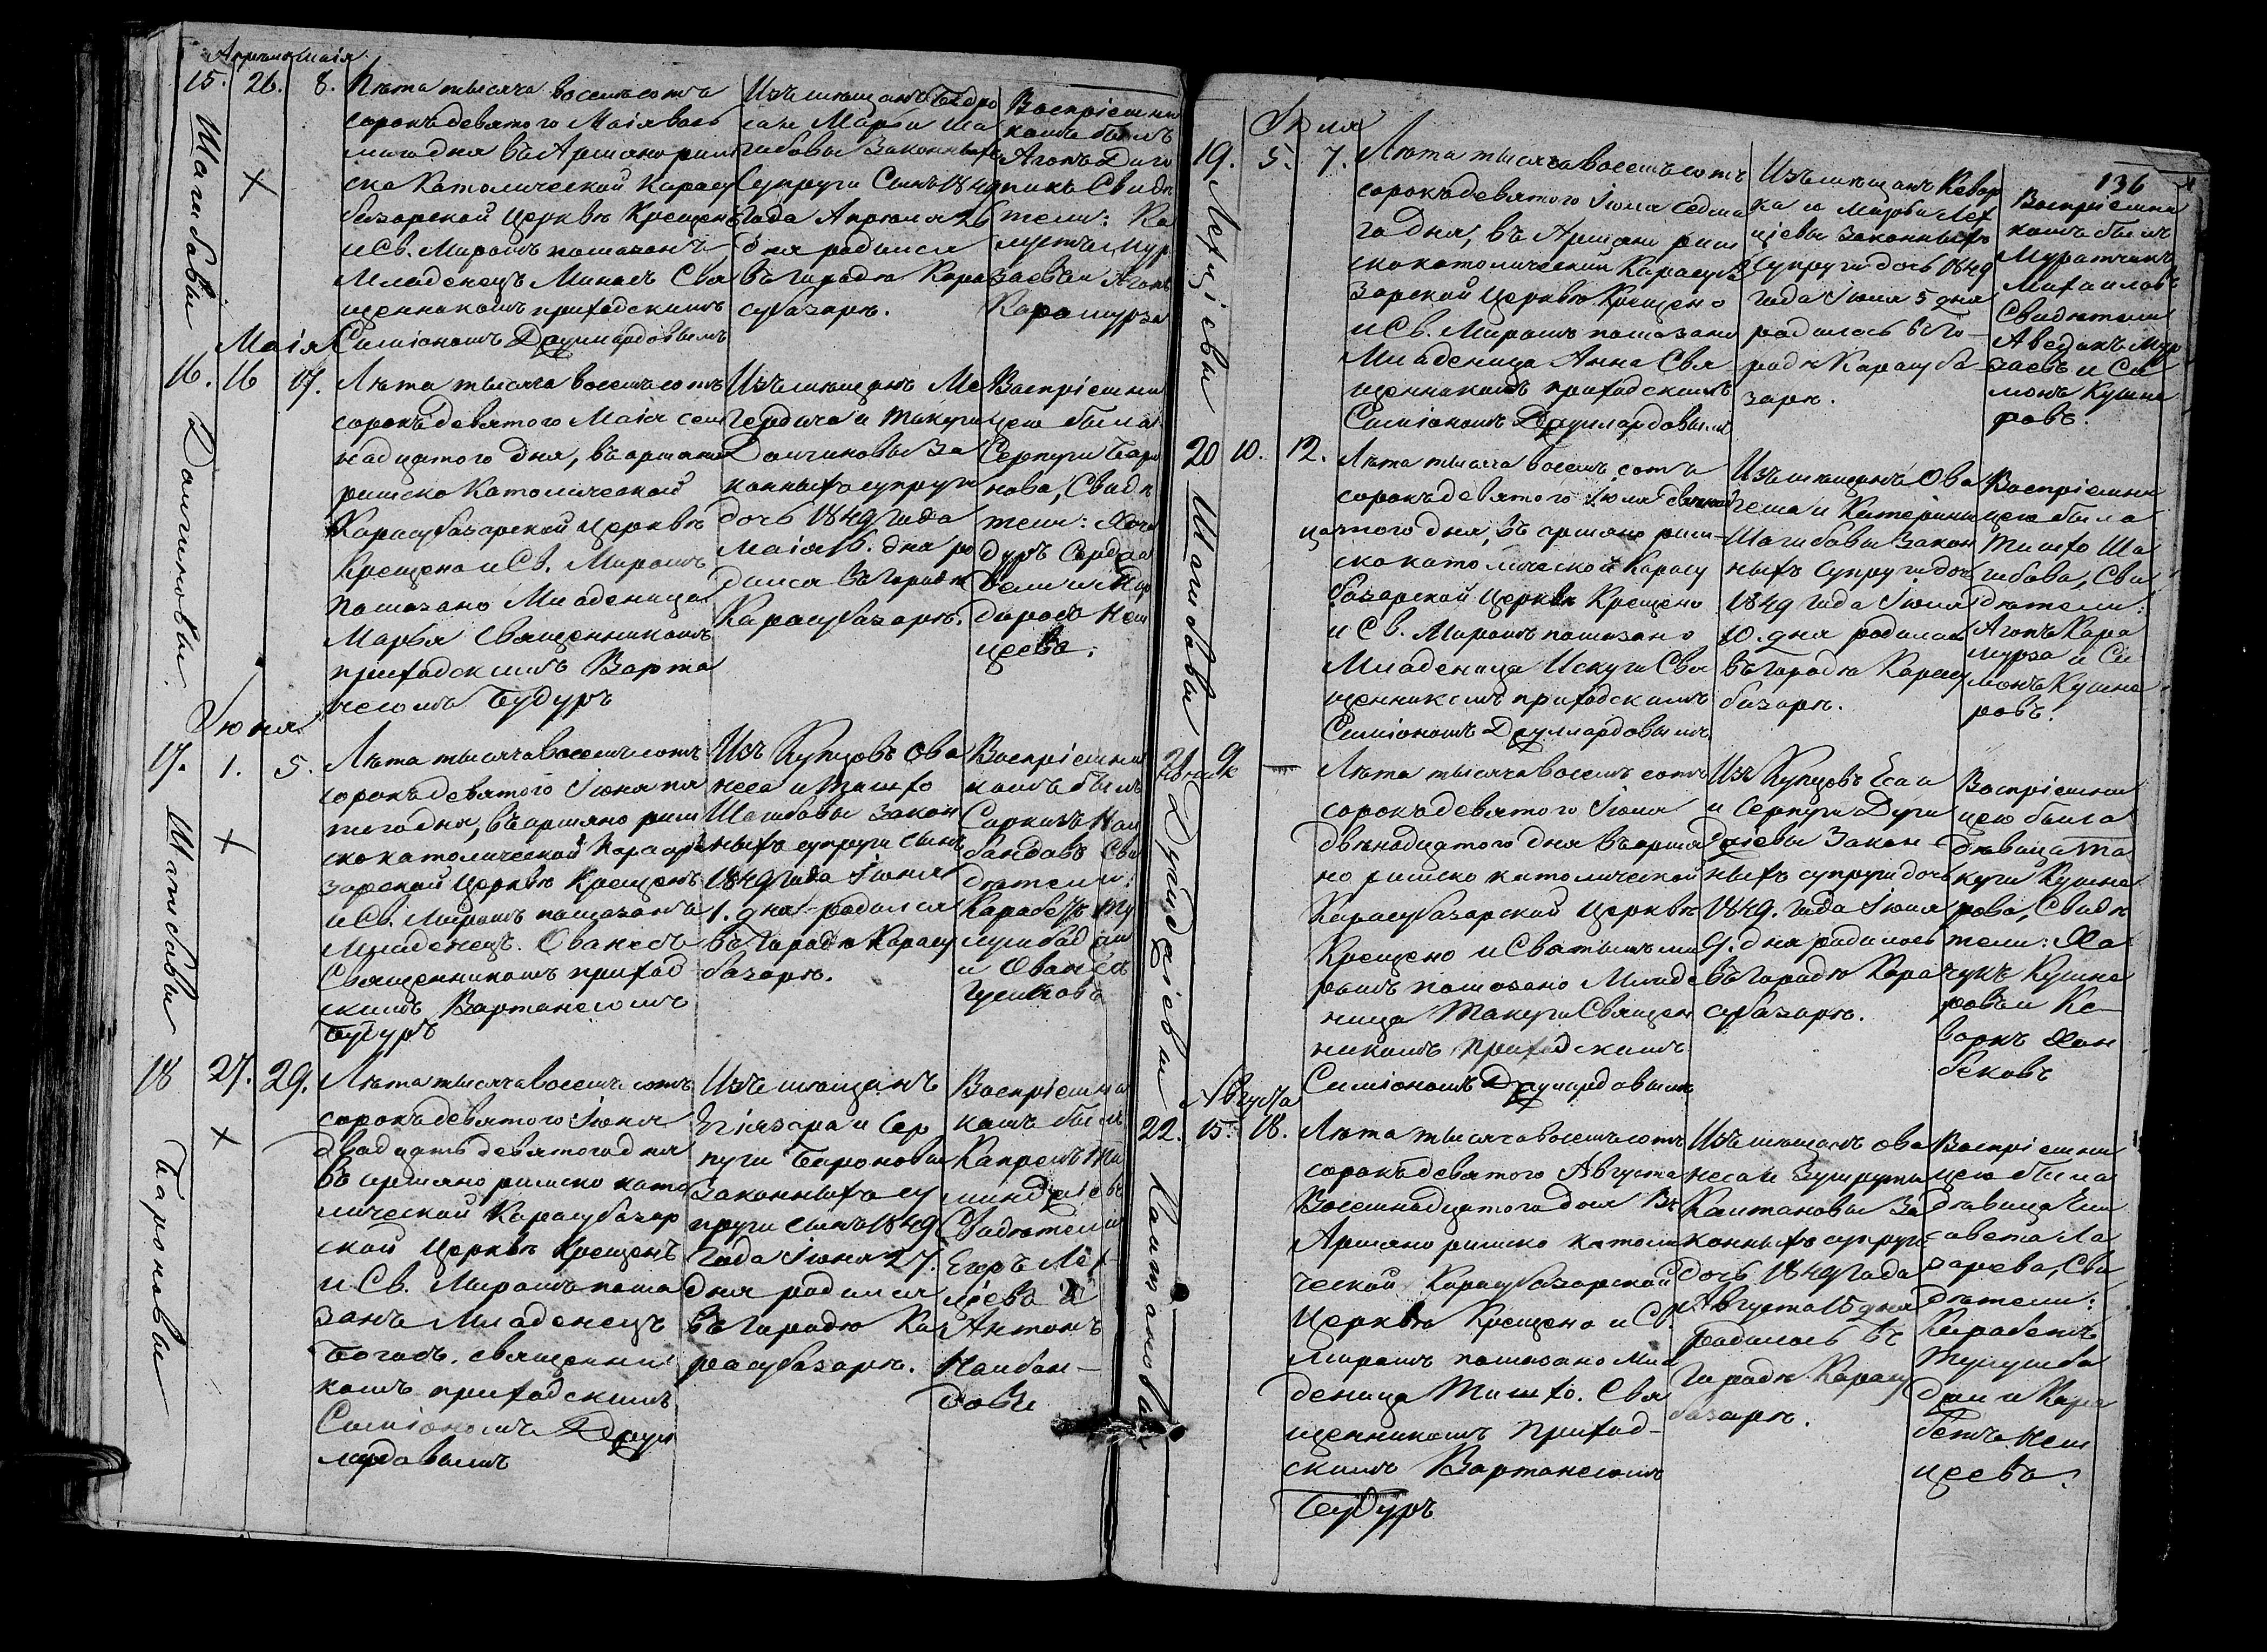 Апреля Маія
15. 26. 8.
Шагибовы
Лѣта тысяча восемьсотъ
сорокъ девятого Маія вось
маго дня въ Армяно рим
ско Католической Карасу
базарской Церквѣ Крещенъ
и Св. Миромъ помазанъ
Младенецъ Минасъ Свя
щенникомъ приходскимъ
Симіономъ
Изъ мещанъ
и Марьи Ша
гибовы Законныхъ
Супруги Сынъ 1849
Года Апреля 26
дня родился
въ городѣ Кара
субазарѣ.
Воспріемни
комъ былъ
Агопъ
Свидѣ
тели: Ка
Мур
заевъ и Агопъ
Карамурза
Маія
16. 16 17.
Долгиновы
Лѣта тысяча восемьсотъ
сорокъ девятого Маія сем
надцатого дня, въ армяно
римско Католической
Карасубазарской Церквѣ
Крещена и Св. Миромъ
помазано Младеница
Марья Священникомъ
приходскимъ Варта
несомъ Будуръ
Изъ мещанъ Ме
и Такуги
Долгиновы За
конныхъ супруги
дочь 1849 Года
Маія 16. дня ро
дился въ городѣ
Карасубазарѣ.
Воспріемни
цею была
Серпуги Баро
нова, Свидѣ
тели:
Іюня
17. 1. 5.
Шагибовы
Лѣта тысяча восемьсотъ
сорокъ девятого Іюня пя
того дня, въ армяно рим
ско католической Карасуба
зарской Церквѣ Крещенъ
и Св. Миромъ помазанъ
Младенецъ. Ованесъ
Священникомъ приход
скимъ Вартанесомъ
Будуръ
Изъ Купцовъ Ова
неса и Тшихо
Шагибовы Закон
ныхъ супруги сынъ
1849 Года Іюня
1. дня родился
въ городѣ Карасу
базарѣ.
Воспріемни
комъ былъ
Саркизъ Наи
бандовъ Сви
дѣтели:
Карабетъ
и Ованесъ
18 27. 29.
Бароновы
Лѣта тысяча восемьсотъ
сорокъ девятого Іюня
двадцать девятого дня
въ армяно римско като
лической Карасубазар
ской Церквѣ Крещенъ
и Св. Миромъ пома
занъ Младенецъ
Богосъ. священни
комъ приходскимъ
Симіономъ
Изъ мещанъ
Егіязара и Сер
пуги Бароновы
Законныхъ су
пруги сынъ 1849
Года Іюня 27.
дня родился
въ городѣ Ка
расубазарѣ.
Воспріемни
комъ былъ
Свидѣтели
Егоръ Лех
ціевъ и
Антонъ
Наибан-
довы
136
Іюля
19. 5. 7.
Лехціевы
Лѣта тысяча восемьсотъ
сорокъ девятого Іюля седма
го дня, въ Армяно рим
ско католической Карасуба
зарской Церквѣ Крещено
и Св. Миромъ помазано
Младеница Анна Свя
щенникомъ приходскимъ
Симіономъ
Изъ мещанъ Кевор
ка и Лех
ціевы законныхъ
Супруги дочь 1849
года Іюля 5 дня
родилась въ го-
родѣ Карасуба
зарѣ.
Воспріемни
комъ былъ
Свидѣтели
Аведикъ Мур
заевъ и Си
монъ Кушне
ровъ.
20 10. 12.
Шагибовы
Лѣта тысяча восемьсотъ
сорокъ девятого Іюля двенад
цатого дня, въ армяно рим-
ско католической Карасу
базарской Церквѣ Крещено
и Св. Миромъ помазано
Младеница Искуги Свя
щенникомъ приходскимъ
Симіономъ
Изъ мещанъ Ова
неса и Катерины
Шагибовы Закон
ныхъ Супруги дочь
1849 Года Іюля
10. дня родилась
въ городѣ Карасу
базарѣ.
Воспріемни
цею была
Тшихо Ша
гибова, Сви
дѣтели:
Агопъ Кара
мурза и Си
монъ Кушне
ровъ.
21 9.
Лѣта тысяча восемьсотъ
сорокъ девятого Іюля
двѣнадцатого дня въ армя
но римско католической
Карасубазарской Церквѣ
Крещено и Святымъ ми
ромъ помазано Младе
ница Такуги Священ
никомъ приходскимъ
Симіономъ
Изъ Купцовъ
и Серпуги
Закон
ныхъ супруги дочь
1849. года Іюля
9. дня родилась
въ городѣ Кара
субазарѣ.
Воспріемни
цею была
дѣвица Та
куги Кушне
рова, Свидѣ
тели: Ха
чикъ Кушне
ровъ и Ке-
воркъ Хан
бековъ
Августа
22. 15. 18.
Калтановы
Лѣта тысяча восемьсотъ
сорокъ девятого Августа
Восемнадцатого дня Въ
Армяно римско католи
ческой Карасубазарской
Церквѣ Крещена и Св.
миромъ помазано Мла
деница Тшихо. Свя
щенникомъ приход-
скимъ Вартанесомъ
Будуръ
Изъ мещанъ Ова
неса и
Калтановы За
конныхъ супруги
дочь 1849 Года
Августа 15 дня
родилась въ
городѣ Карасу
базарѣ.
Воспріемни
цею была
дѣвица Ели
савета Ла
зарева, Сви
дѣтели:
Карабетъ
и Кара
бетъ